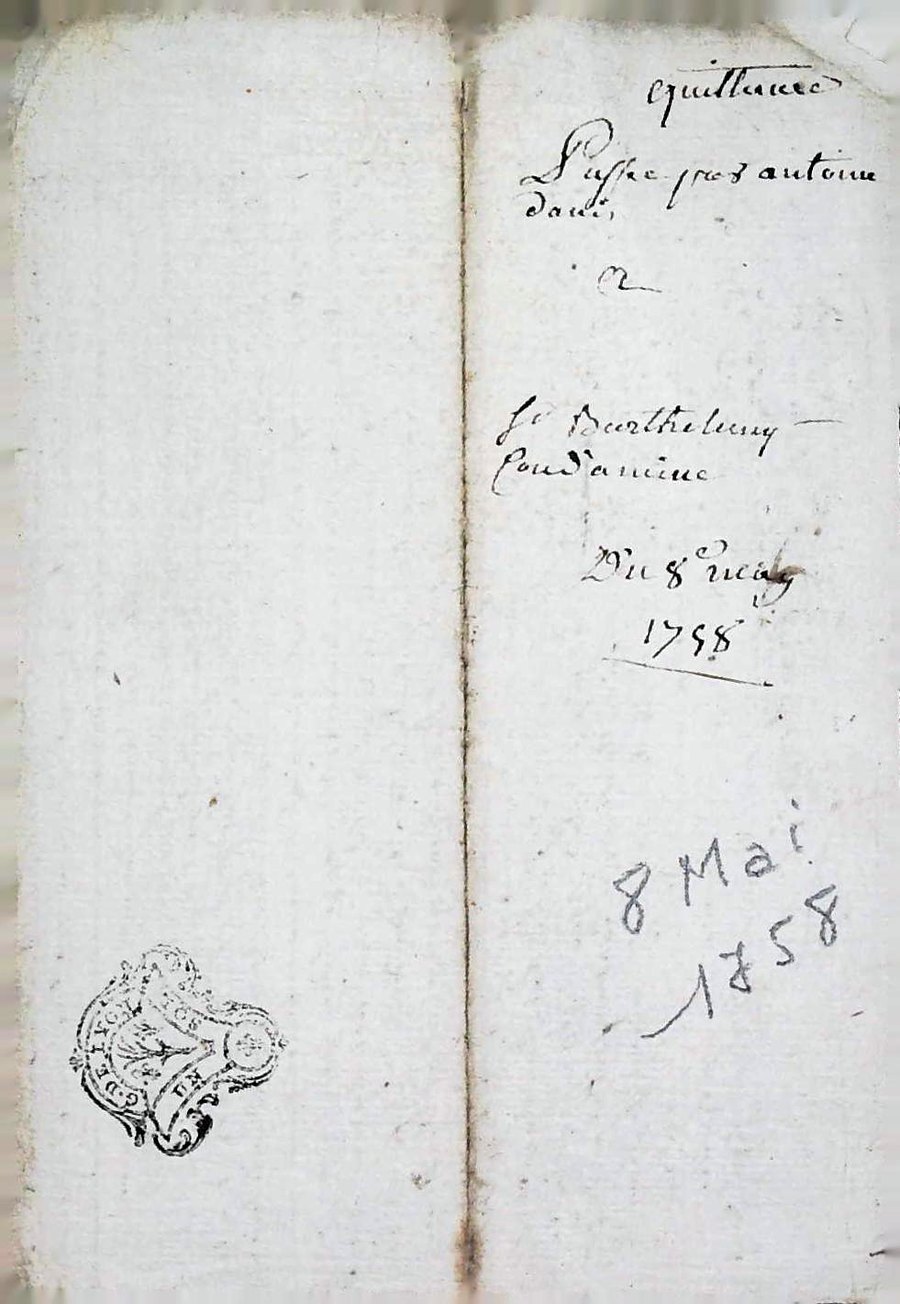 quittance
Passée par antoine
davi
a
Sr Barthelemy
Condamine
Du 8e may
1758
8 Mai
1758
G. DE LYON
SOL
UN